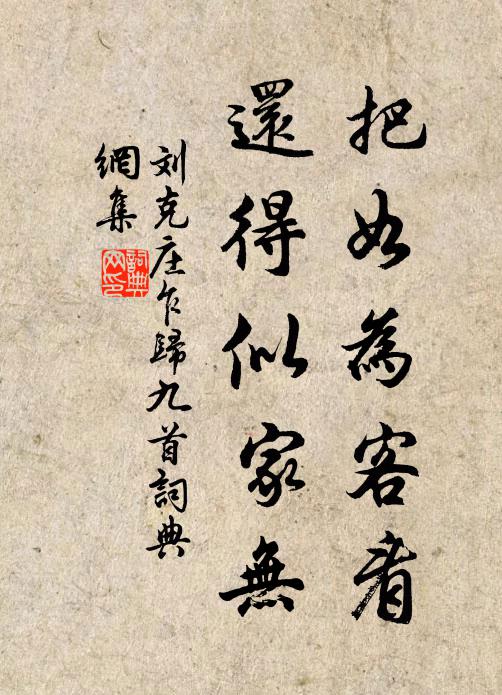 把如為客看
還得似家無
刘克庄乍歸九首詞典
網集
詞典網印